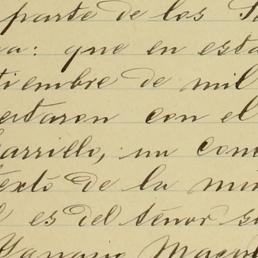 parte de los
a: que en esta
tiembre de mil
estaron con el
Carrillo, un com
texto de la mi
l es del tenor si